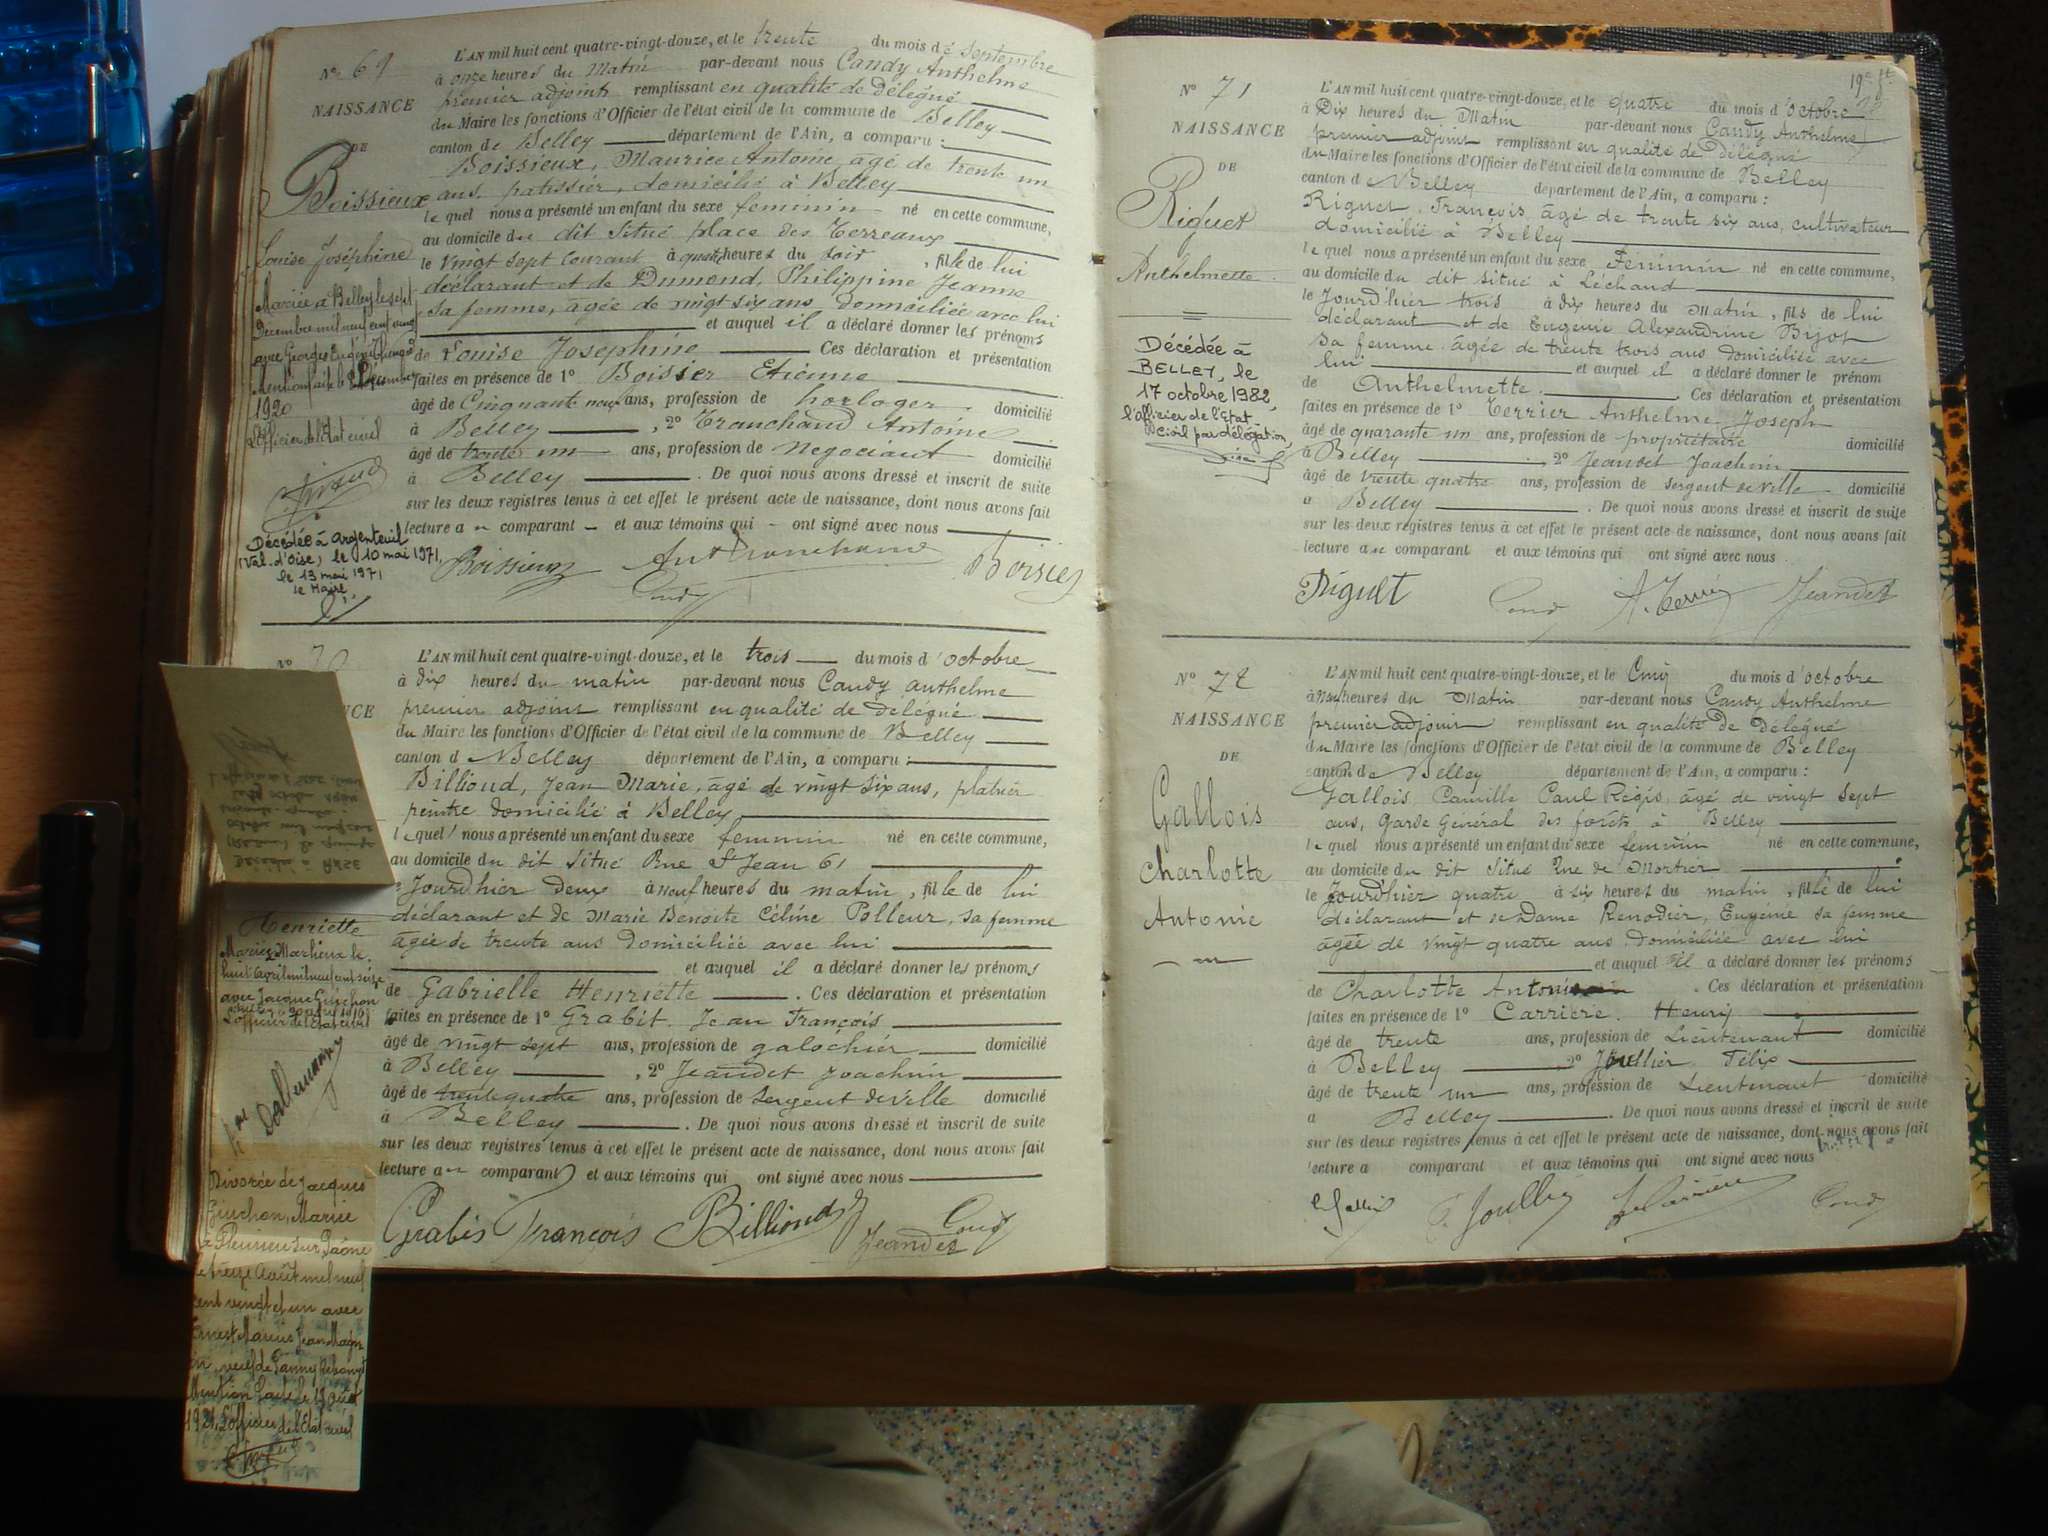 N° 69
NAISSANCE
DE
Boissieux
Louise Joséphine
Mariée à Belley le sept
Décembre mil neuf cent vingt
avec Georges Eugène
Mention faite le Décembre
1920
L'Officier de l'Etat civil
Décédée à Argenteuil
(Val-d'Oise) le 10 mai 1971,
le 13 mai 1971
le Maire,
L'AN mil huit cent quatre-vingt-douze, et le trente du mois de septembre
à onze heures du Matin par-devant nous Candy Anthelme
premier adjoint remplissant en qualité de délégué
du Maire les fonctions d'Officier de l'état civil de la commune de Belley
canton de Belley département de l'Ain, a comparu :
Boissieux, Maurice Antoine, agé de trente un
ans, patissier, domicilié à Belley
le quel nous a présenté un enfant du sexe feminin né en cette commune,
au domicile du dit situé place des Terreaux
le vingt sept courant à heures du soir, fille de lui
déclarant et de Dumond, Philippine Jeanne
sa femme, agée de vingt six ans domiciliée avec lui
et auquel il a déclaré donner les prénoms
de Louise Joséphine Ces déclaration et présentation
faites en présence de 1° Boisser Etienne
âgé de Cinquante neuf ans, profession de horloger domicilié
à Belley, 2° Tranchand Antoine
âgé de trente un ans, profession de Negociant domicilié
à Belley. De quoi nous avons dressé et inscrit de suite
sur les deux registres tenus à cet effet le présent acte de naissance, dont nous avons fait
lecture au comparant et aux témoins qui ont signé avec nous
Boissieux Ant Tranchand Boisser
Candy
N° 70
NCE
Henriette
Mariée à Marlieux le
huit avril mil neuf cent seize
avec Jacques Guichon
L'officier de l'Etat civil
Divorcée de Jacques
Guichon, Mariée
à Fleurieu sur Saône
le treize Août mil neuf
cent vingt et un avec
Ernest Marius Jean Magn
in, veuf de Fanny
Mention faite le 19 août
1921, L'officier de l'Etat civil
L'AN mil huit cent quatre-vingt-douze, et le trois du mois d'octobre
à dix heures du matin par-devant nous Candy anthelme
premier adjoint remplissant en qualité de délégué
du Maire les fonctions d'Officier de l'état civil de la commune de Belley
canton d Belley département de l'Ain, a comparu :
Billioud, Jean Marie, agé de vingt six ans, platrier
peintre domicilié à Belley
le quel nous a présenté un enfant du sexe feminin né en cette commune,
au domicile du dit situé Rue St Jean 61
Jourd'hier deux à neuf heures du matin, fille de lui
déclarant et de Marie Benoite Céline Polleur, sa femme
agée de trente ans domiciliée avec lui
et auquel il a déclaré donner les prénoms
de Gabrielle Henriette. Ces déclaration et présentation
faites en présence de 1° Grabit Jean François
âgé de vingt sept ans, profession de galochier domicilié
à Belley, 2° Jeandet Joachim
âgé de trente quatre ans, profession de sergent de ville domicilié
à Belley. De quoi nous avons dressé et inscrit de suite
sur les deux registres tenus à cet effet le présent acte de naissance, dont nous avons fait
lecture au comparant et aux témoins qui ont signé avec nous
Grabit François Billioud Candy
Jeandet
19e ft
N° 71
NAISSANCE
DE
Riguet
Anthelmette
Décédée à
BELLEY, le
17 octobre 1982,
l'officier de l'Etat
civil par délégation,
L'AN mil huit cent quatre-vingt-douze, et le quatre du mois d'octobre
à Dix heures du Matin par-devant nous Candy Anthelme
premier adjoint remplissant en qualité de Délégué
du Maire les fonctions d'Officier de l'état civil de la commune de Belley
canton d Belley département de l'Ain, a comparu :
Riguet, François, âgé de trente six ans, cultivateur
domicilié à Belley
le quel nous a présenté un enfant du sexe Féminin né en cette commune,
au domicile du dit situé à Léchaud
le Jourd'hier trois à dix heures du Matin, fils de lui
déclarant et de Eugenie Alexandrine Bijot
sa femme âgée de trente trois ans domiciliée avec
lui et auquel il a déclaré donner le prénom
de Anthelmette. Ces déclaration et présentation
faites en présence de 1° Terrier Anthelme Joseph
âgé de quarante un ans, profession de propriétaire domicilié
à Belley 2° Jeandet Joachim
âgé de trente quatre ans, profession de sergent de ville domicilié
à Belley. De quoi nous avons dressé et inscrit de suite
sur les deux registres tenus à cet effet le présent acte de naissance, dont nous avons fait
lecture au comparant et aux témoins qui ont signé avec nous
Riguet Candy A. Terrier Jeandet
N° 72
NAISSANCE
DE
Gallois
Charlotte
Antonie
L'AN mil huit cent quatre-vingt-douze, et le Cinq du mois d'octobre
à neuf heures du Matin par-devant nous Candy Anthelme
premier adjoint remplissant en qualité de Délégué
du Maire les fonctions d'Officier de l'état civil de la commune de Belley
canton de Belley département de l'Ain, a comparu :
Gallois, Camille Paul Régis, âgé de vingt sept
ans, Garde Général des forêts à Belley
le quel nous a présenté un enfant du sexe feminin né en cette commune,
au domicile du dit situé Rue de Mortier
le Jourd'hier quatre à six heures du matin, fille de lui
déclarant et de Dame Renodier, Eugénie sa femme
agée de vingt quatre ans domiciliée avec lui
et auquel il a déclaré donner les prénoms
de Charlotte Antonie. Ces déclaration et présentation
faites en présence de 1° Carrière, Henry
âgé de trente ans, profession de Lieutenant domicilié
à Belley, 2° Joullier Félix
âgé de trente un ans, profession de Lieutenant domicilié
à Belley. De quoi nous avons dressé et inscrit de suite
sur les deux registres tenus à cet effet le présent acte de naissance, dont nous avons fait
lecture a comparant et aux témoins qui ont signé avec nous